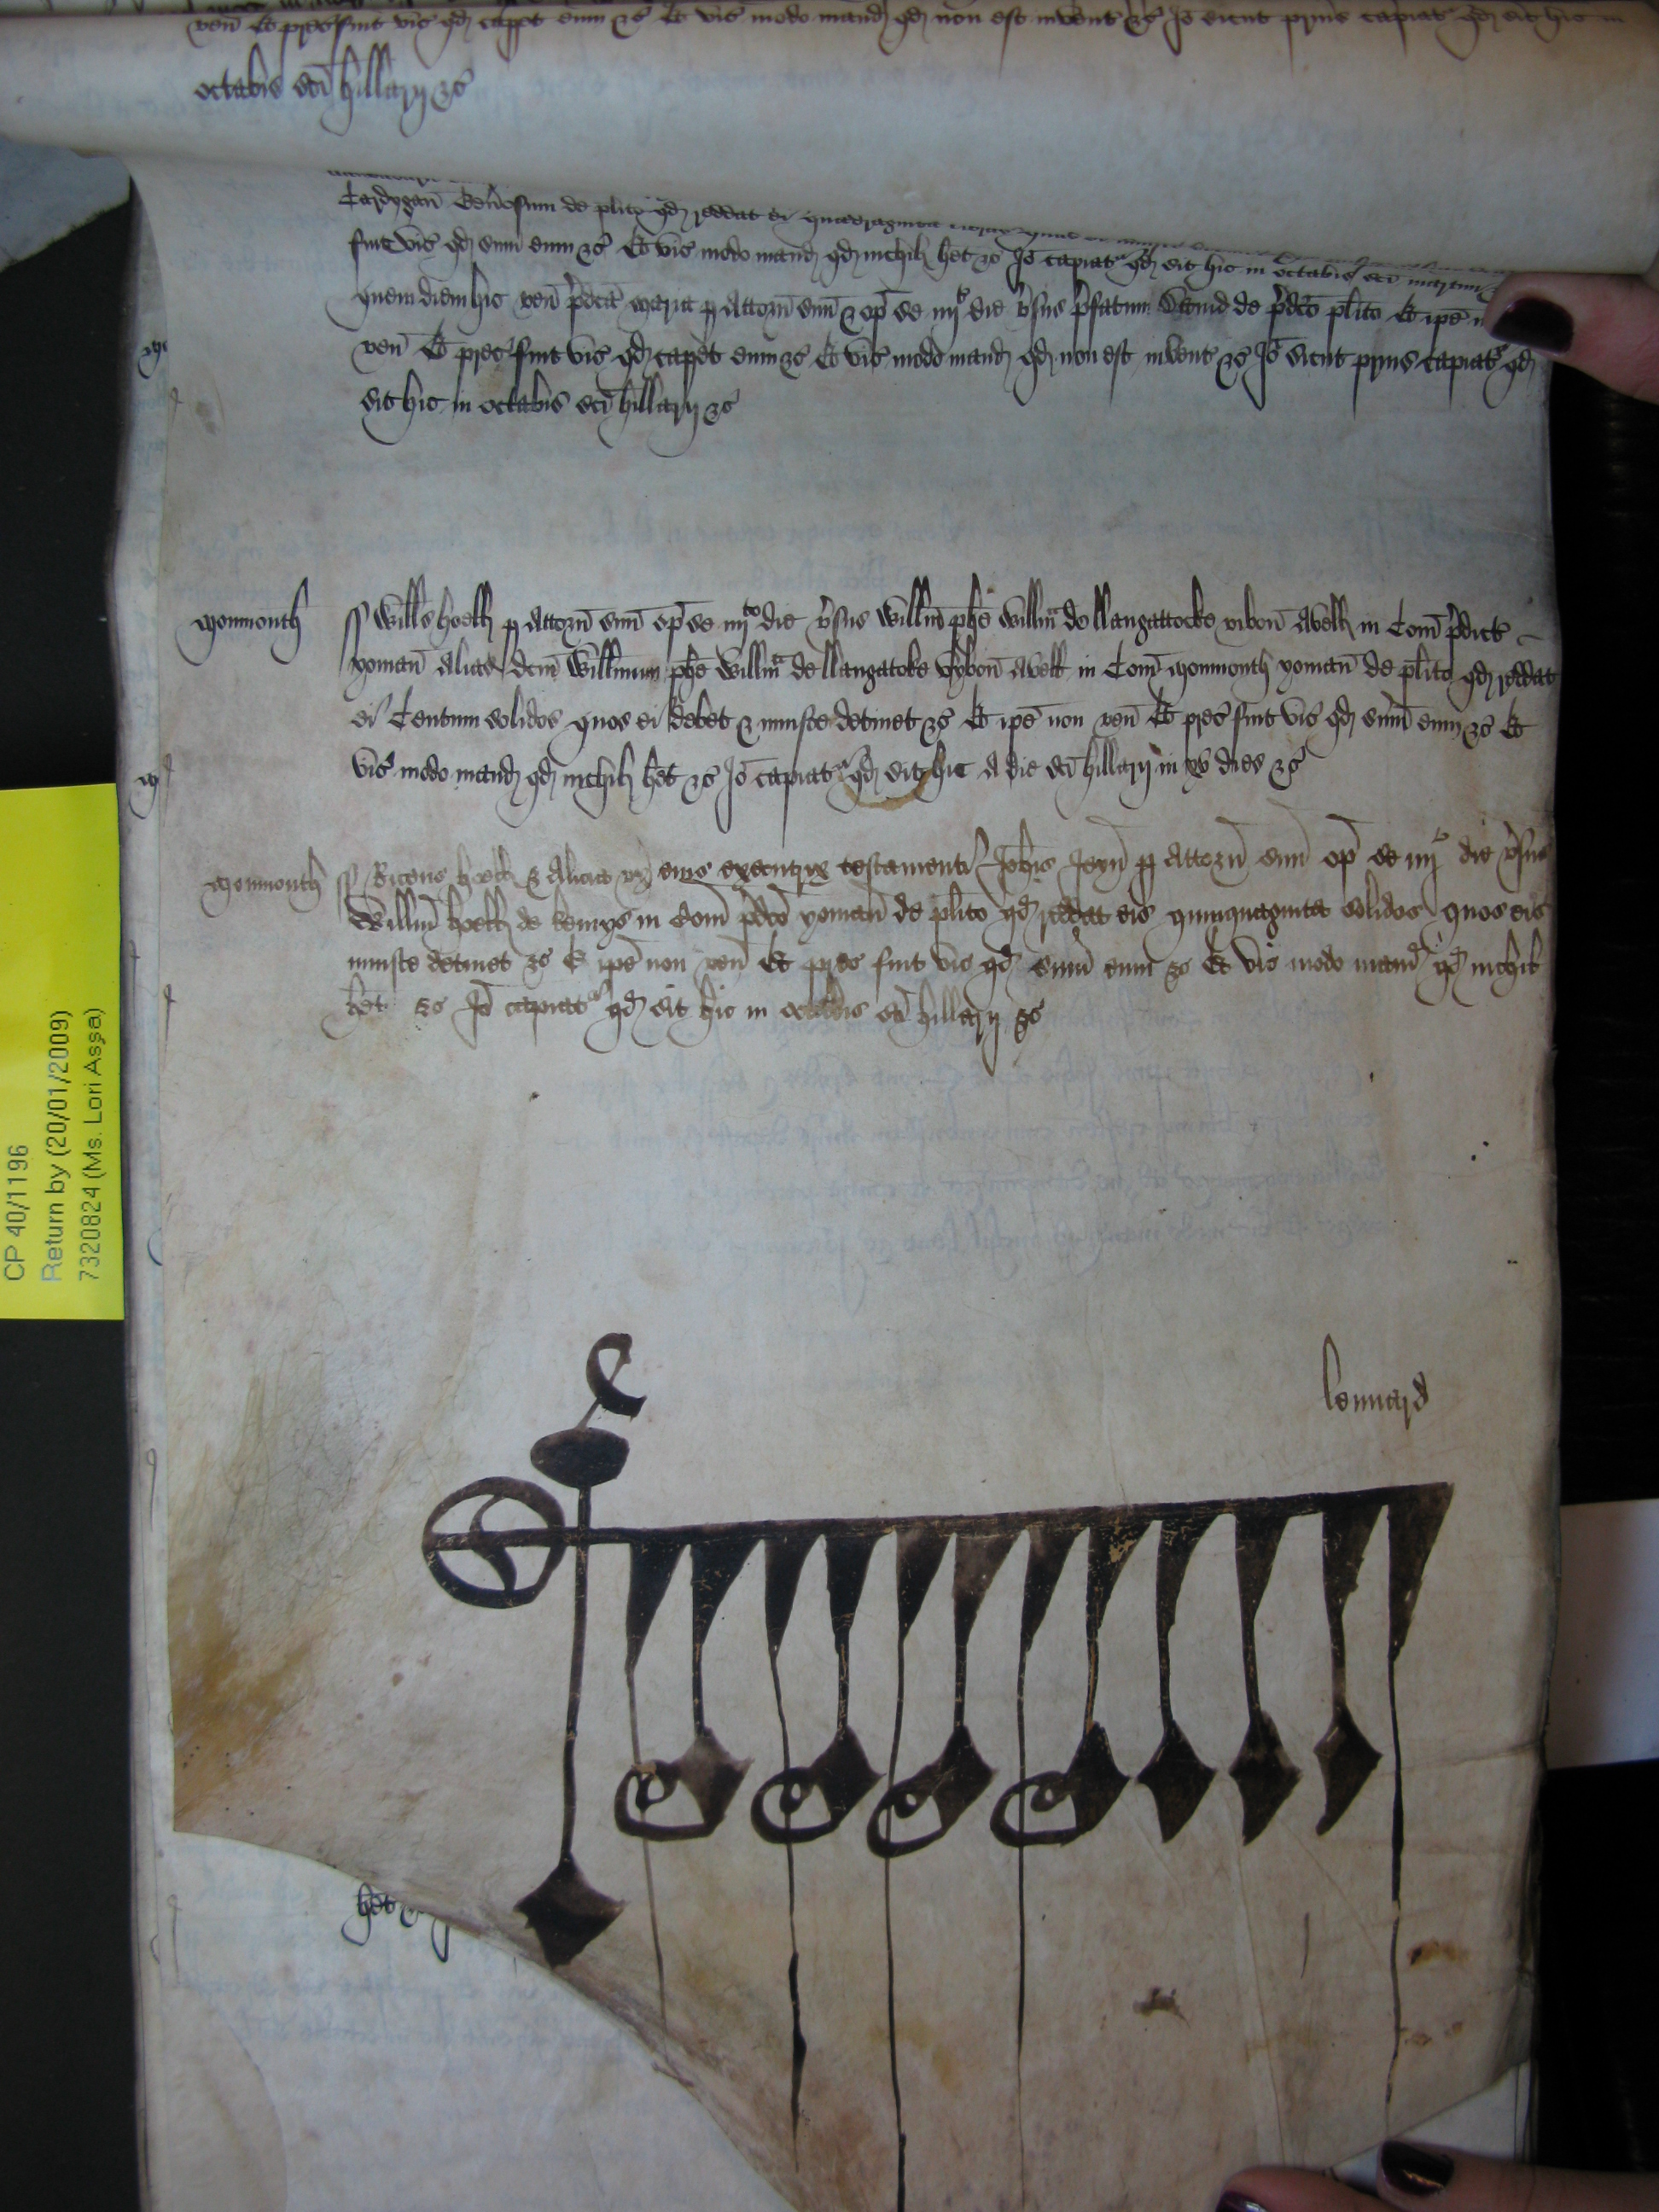 ven̄ Et prec̄ fuit vic̄ qd̄ capet eum zc̄ Et vic̄ modo mand̄ qd̄ non est invent zc̄ Iō sicut prius capiatr qd̄ sit hic in
octabis sc̄i hillarij zc̄
Cardygan Gen̄osum de plito qd̄ reddat ei quadraginta
fuit vic̄ qd̄ sum̄ eum zc̄ Et vic̄ modo mand̄ qd̄ nichil het zc̄ Iō capiatr qd̄ sit hic in Octabis sc̄i martini
quem diem hic ven̄ p̄dc̄a maria p Attorn̄ suū & op̄ se iiijto die v̄sus p̄fatum David de p̄dc̄o plito Et ip̄e
ven̄ Et prec̄ fuit vic̄ qd̄ capet eum zc̄ Et vic̄ modo mand̄ qd̄ non est invent zc̄ Iō sicut prius capiatr qd̄
sit hic in octabis sc̄i hillarij zc̄
Monmouth ss Wills hoell p Attorn̄ suū op̄ se iiijto die v̄sus Willm̄ ph̄e Willm̄ de llangattocke vibon̄ Avell in Com̄ p̄dict
yoman̄ Alias dcm̄ Willmum ph̄e Willm̄ de llangatoke vybon̄ Avell in Com̄ Monmouth yoman̄ de plito qd̄ reddat
ei Centum solidos quos ei debet & iniuste detinet zc̄ Et ip̄e non ven̄ Et prec̄ fuit vic̄ qd̄ sum̄ eum zc̄ Et
vic̄ modo mand̄ qd̄ nichil het zc̄ Iō capiatr qd̄ sit hic A die sc̄i hillarij in xv dies zc̄
Monmouth ss Ricens hoell & Alicia ux̄ eius executrix testamenti Joh̄is Jeyn̄ p Attorn̄ suū op̄ se iiijto die v̄sus
Willm̄ hoell de kemys in Com̄ p̄dc̄o yoman̄ de plito qd̄ reddat eis quinquaginta solidos quos eis
iniuste detinet zc̄ Et ip̄e non ven̄ Et prec̄ fuit vic̄ qd̄ sum̄ eum zc̄ Et vic̄ modo mand̄ qd̄ nichil
het zc̄ Iō capiatr qd̄ sit hic in octabis sc̄i hillarij zc̄
lennard
het
CP 40/1196
Return by (20/01/2009)
7320824 (Ms. Lori Assa)